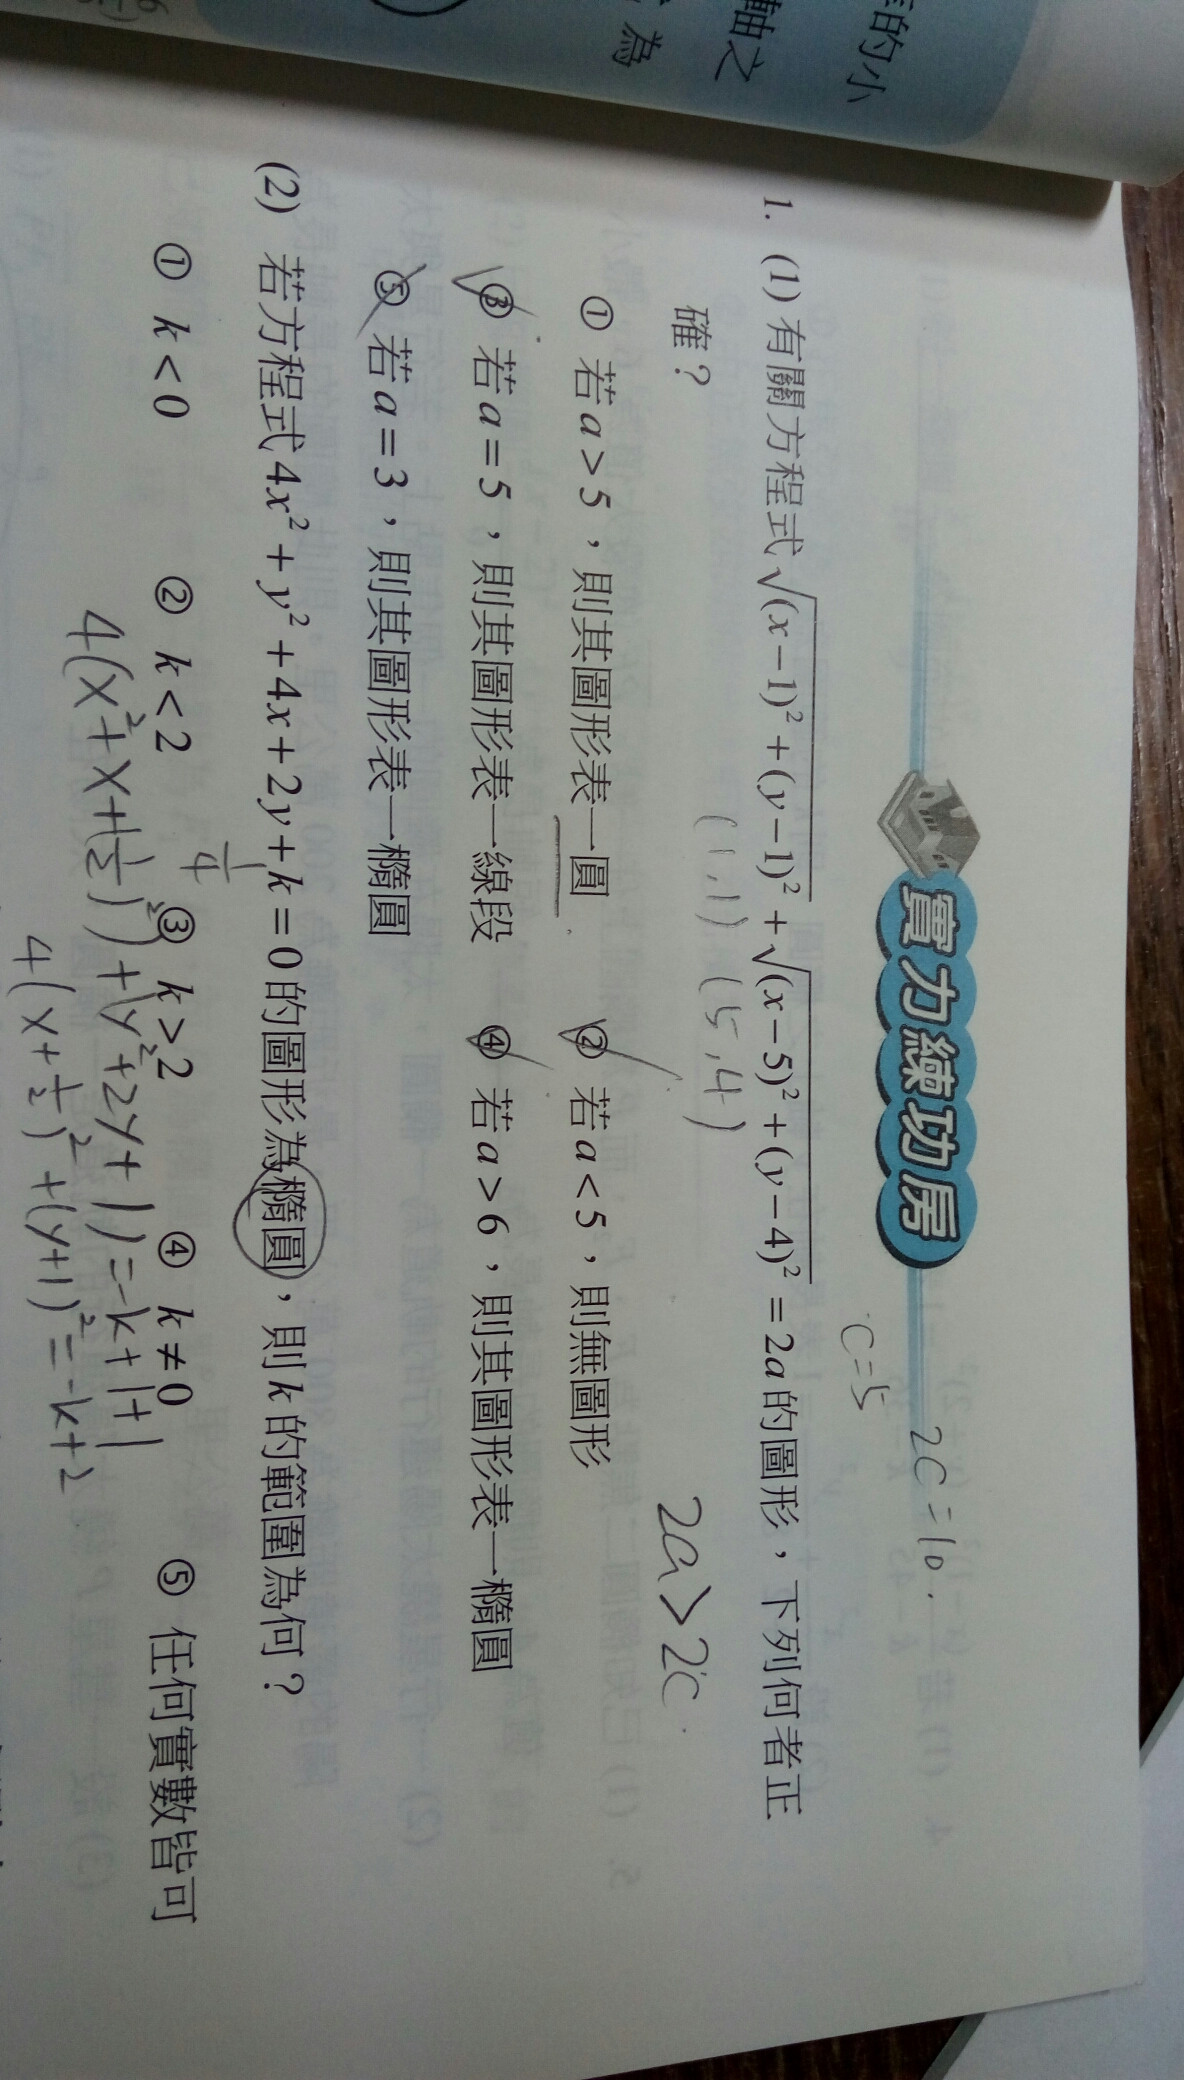 的小
軸之
為
實力練功房
2C=10.
C=5
1. (1) 有關方程式√(x-1)²+(y-1)² + √(x-5)²+(y-4)² = 2a的圖形，下列何者正
確？
(1,1) (5,4)
2a>2c
① 若a>5，則其圖形表一圓
② 若a<5，則無圖形
③ 若a=5，則其圖形表一線段
④ 若a>6，則其圖形表一橢圓
⑤ 若a=3，則其圖形表一橢圓
(2) 若方程式4x²+y²+4x+2y+k=0的圖形為橢圓，則k的範圍為何？
① k<0 ② k<2 ③ k>2 ④ k≠0 ⑤ 任何實數皆可
1/4
4(x²+x+(1/2)²)+(y²+2y+1)=-k+1+1
4(x+1/2)²+(y+1)²=-k+2